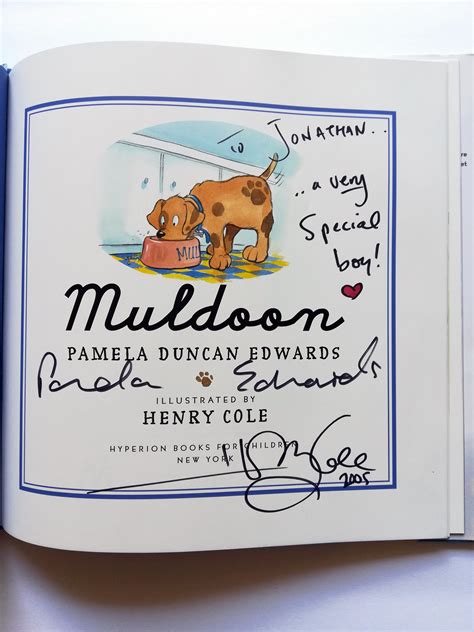 To JONATHAN...
..a very
Special
boy!
MULL
Muldoon
PAMELA DUNCAN EDWARDS
Pamela Edwards
ILLUSTRATED BY
HENRY COLE
HYPERION BOOKS FOR CHILDREN
NEW YORK
Cole
2005
re
et